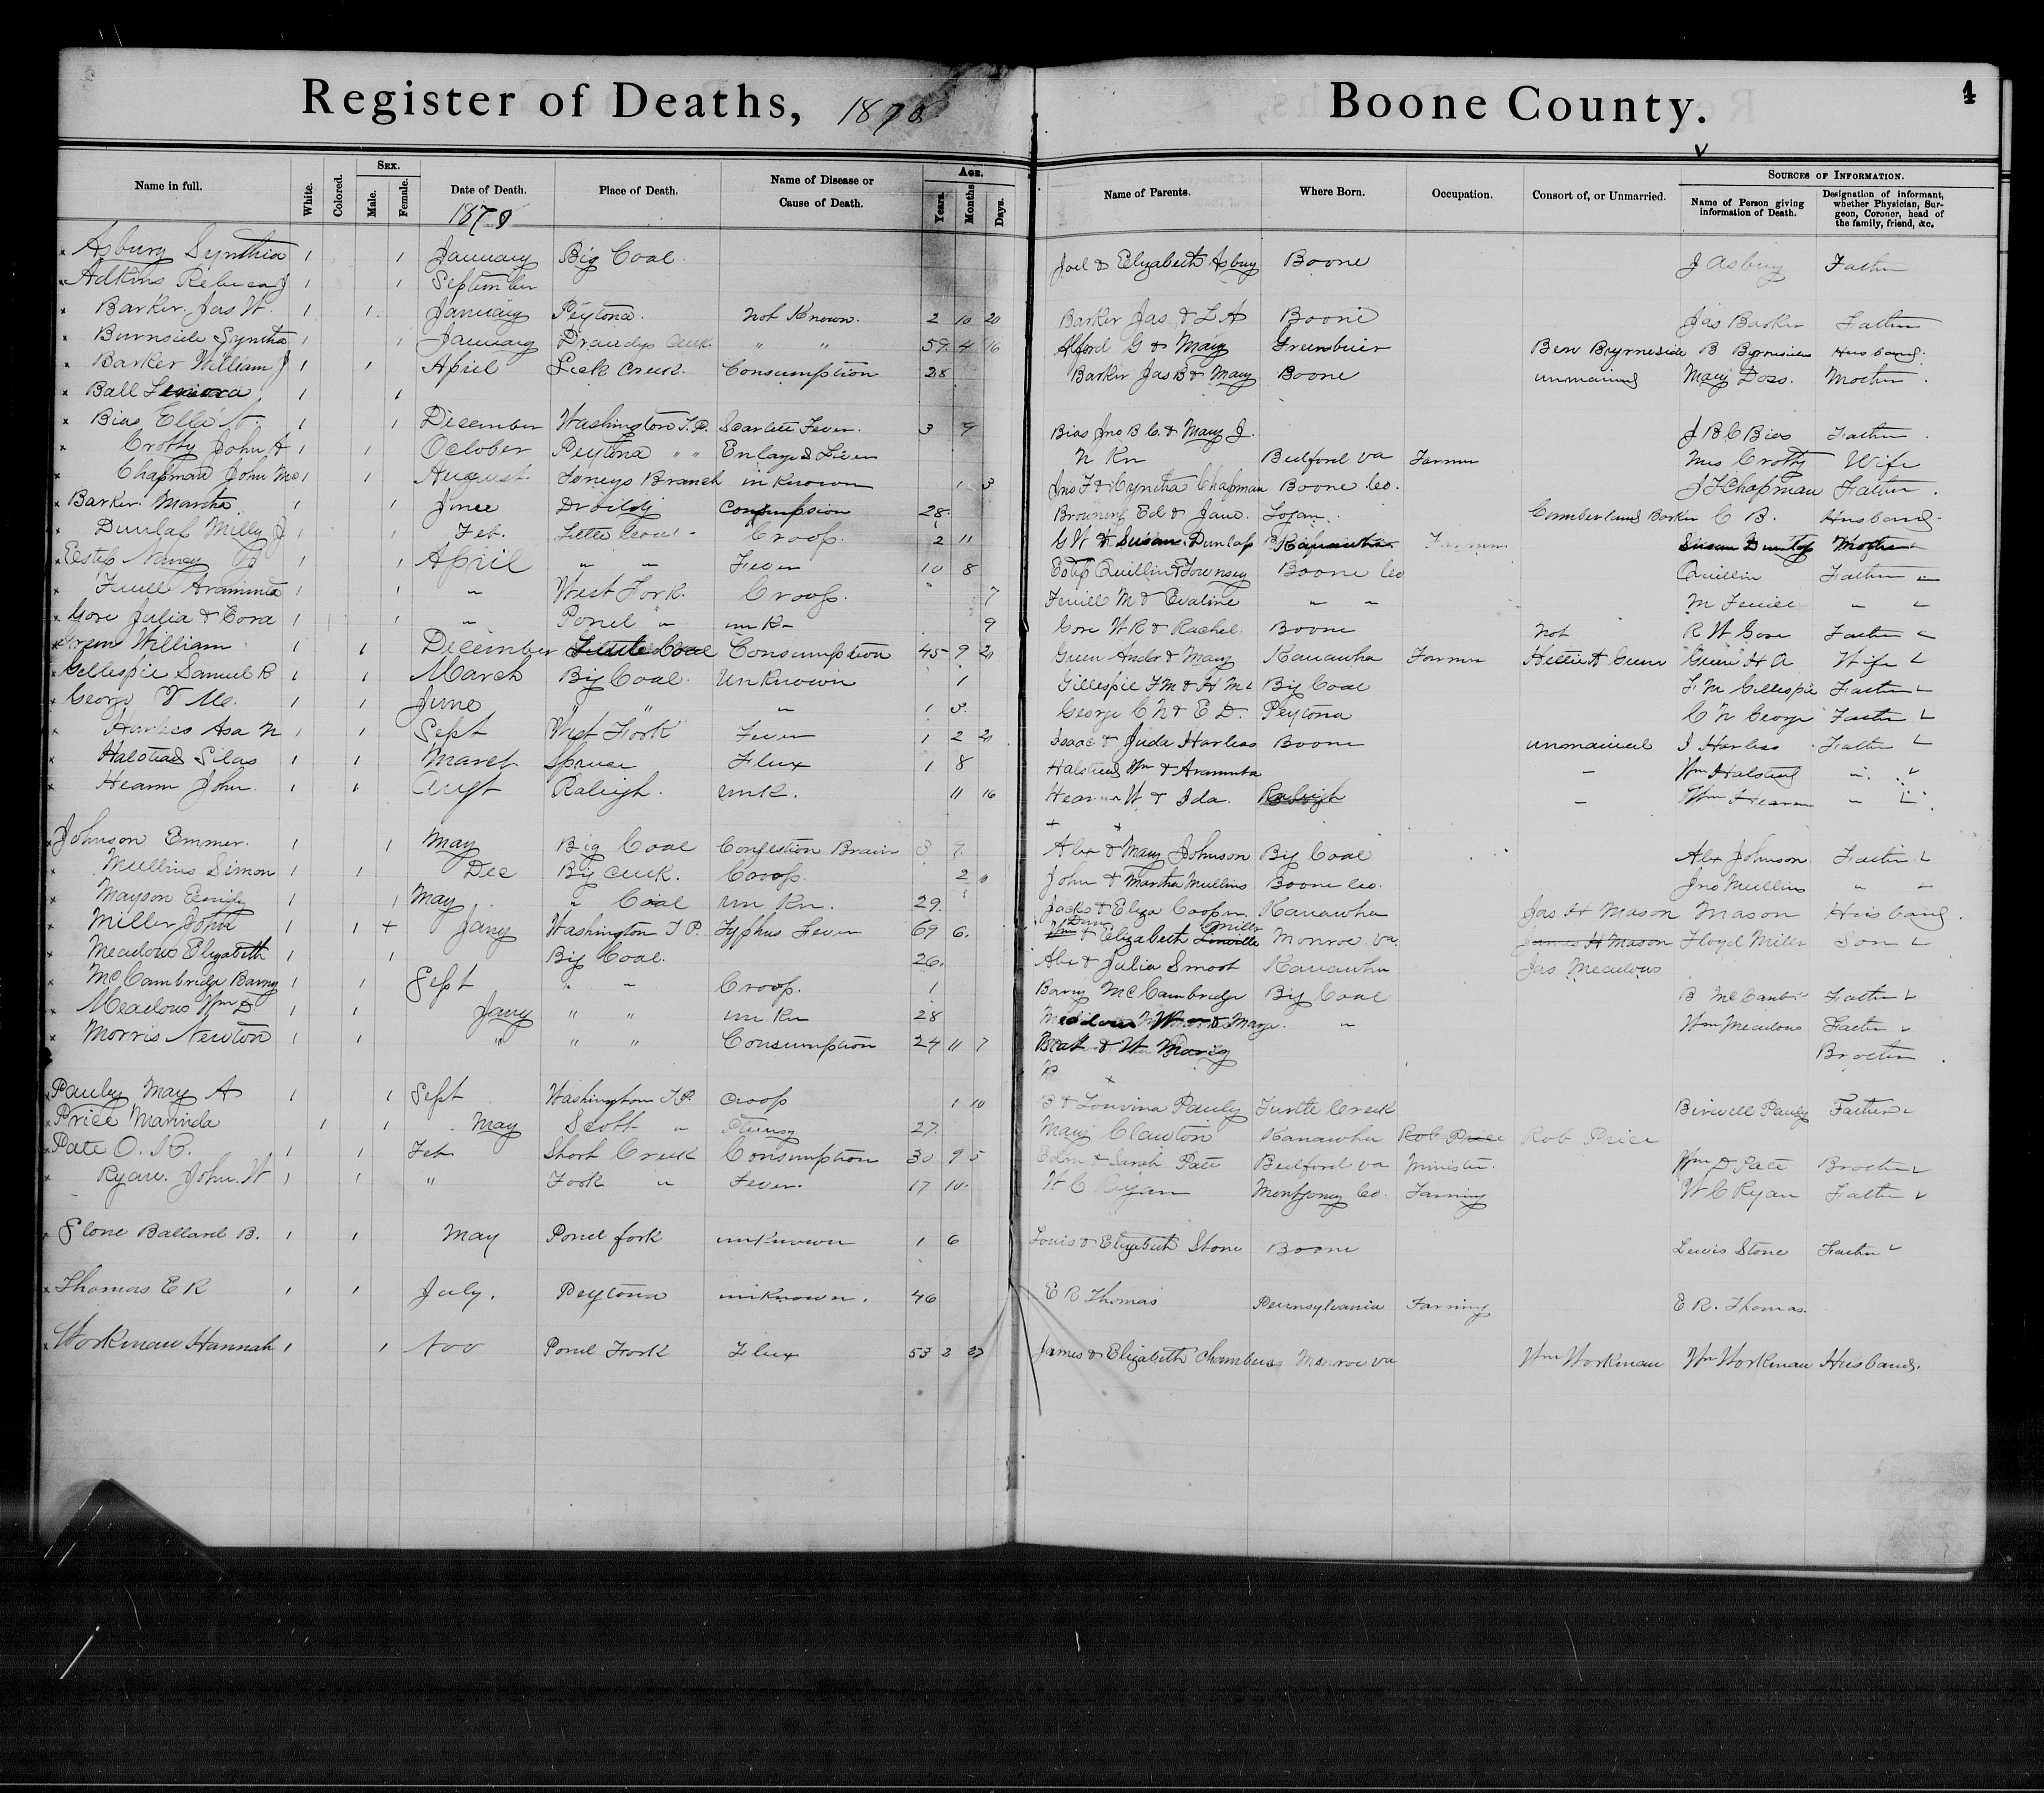 Register of Deaths, 1878 Boone County. 4
Name in full. White. Colored. Sex. Male. Female. Date of Death. 1878 Place of Death. Name of Disease or Cause of Death. Age. Years. Months. Days. Name of Parents. Where Born. Occupation. Consort of, or Unmarried. Sources of Information. Name of Person giving information of Death. Designation of informant, whether Physician, Surgeon, Coroner, head of the family, friend, &c.
Asbury Synthia 1 1 January Big Coal Joel & Elizabeth Asbury Boone J Asbury Father
Adkins Rebeca J 1 1 September
Barker Jas W. 1 1 January Peytona. not Known. 2 10 20 Barker Jas & L A Boone Jas Barker Father
Burnside Syntha 1 1 January " " 59 4 16 Alford G & Mary Greenbrier Ben Byrneside B Byrneside Husband.
Barker William J 1 1 April Lick Creek. Consumption 28 Barker Jas B & Mary Boone unmarried Mary Doss. Mother.
Ball 1 1
Bias Ella 1 1 December Washington T.P. Scarlett Fever. 3 9 Bias Jno B C. & Mary J. J B C Bias Father
Crotty John A 1 1 October Peytona " " Enlarged Liver n Kn Bedford Va Farmer Mrs Crotty Wife
Chapman John Mc 1 1 August Toneys Branch unknown 1 3 Jno F & Cyntha Chapman Boone Co. J F Chapman Father.
Barker Martha 1 1 June Consumpsion 28 Browning Ed & Jane. Logan. Cumberland Barker C B. Husband.
Dunlap Milly J 1 1 Feb. Little Coal. Croop. 2 11 G W & Susan Dunlap Kanawha Farmer Susan Dunlap Mother
Estep Nancy 1 1 April " " Fever 10 8 Estep Quillin & Townsey Boone Co Quillin Father
Ferrell Araminta 1 1 " West Fork. Croop. 7 Ferrell M & Evaline " " M Ferrell "
Gore Julia & Cora 1 1 " Pond " un K- 9 Gore W R & Rachel. Boone Not R W Gore Father
Green William 1 1 December Little Coal Consumption 45 9 20 Green Andr & Mary Kanawha Farmer Hettie A Green Green H A Wife
Gillespie Samuel R 1 1 March Big Coal. Unknown 1 Gillespie F M & H Mc Big Coal F M Gillespie Father
George 1 1 June " " " 1 3. George C N & E D. Peytona C N George Father
Harless Asa N 1 1 Sept West Fork Fever 1 2 20 Isaac & Juda Harless Boone unmarried I Harless Father
Halstead Silas 1 1 March Spruce Flux 1 8 Halstead Wm & Araminta - Wm Halstead "
Hearn John 1 1 Augt Raleigh. unk. 11 16 Hearn W & Ida. Raleigh - Wm Hearn "
Johnson Emmer. 1 1 May Big Coal Congestion Brain 3 9 Alex & Mary Johnson Big Coal Alex Johnson Father
Mullins Simon 1 1 Dec Big Creek. Croop. 2 John & Martha Mullins Boone Co. Jno Mullins "
Mayson Emily 1 1 May " Coal un Kn. 29. Jacks & Eliza Cooper. Kanawha Jas H Mason Mason Husband.
Miller John 1 1 + Jany Washington T P. Typhus Fever 69 6. & Elizabeth Miller Monroe Va James H Mason Floyd Miller Son
Meadows Elizabeth 1 1 Big Coal. 26. Abe & Julia Smoot Kanawha Jas Meadows
McCambridge Barny 1 1 Sept " " Croop. 1 Barny McCambridge Big Coal B McCamb Father
Meadows Wm D 1 1 Jany " " un Kn 28 Meadows W & Mary. " Wm Meadows Father
Morris Newton 1 1 " " " Consumption 24 11 7 Brother
Pauley May A 1 1 Sept Washington T P. croop 1 10 B & Louvina Pauly Turtle Creek Birwell Pauly Father
Price Marinda 1 1 May Scott " 27. Mary Clawton Kanawha Rob Price Rob Price
Pate O. R. 1 1 Feb Short Creek Consumption 30 9 5 Edm & Sarah Pate Bedford Va Minister. Wm D Pate Brother
Ryan. John. W 1 1 " Fork " Fever. 17 10. W C Ryan Montgomy Co. Farming W C Ryan Father
Stone Ballard B. 1 1 May Pond fork unknown 1 6 Louis & Elizabeth Stone Boone Lewis Stone Father
Thomas E R 1 1 July. Peytona unknown. 46 E R Thomas Pennsylvania Farming E R. Thomas.
Workman Hannah 1 1 Nov Pond Fork Flux 53 2 27 James & Elizabeth Chambers Monroe Va Wm Workman Wm Workman Husband.